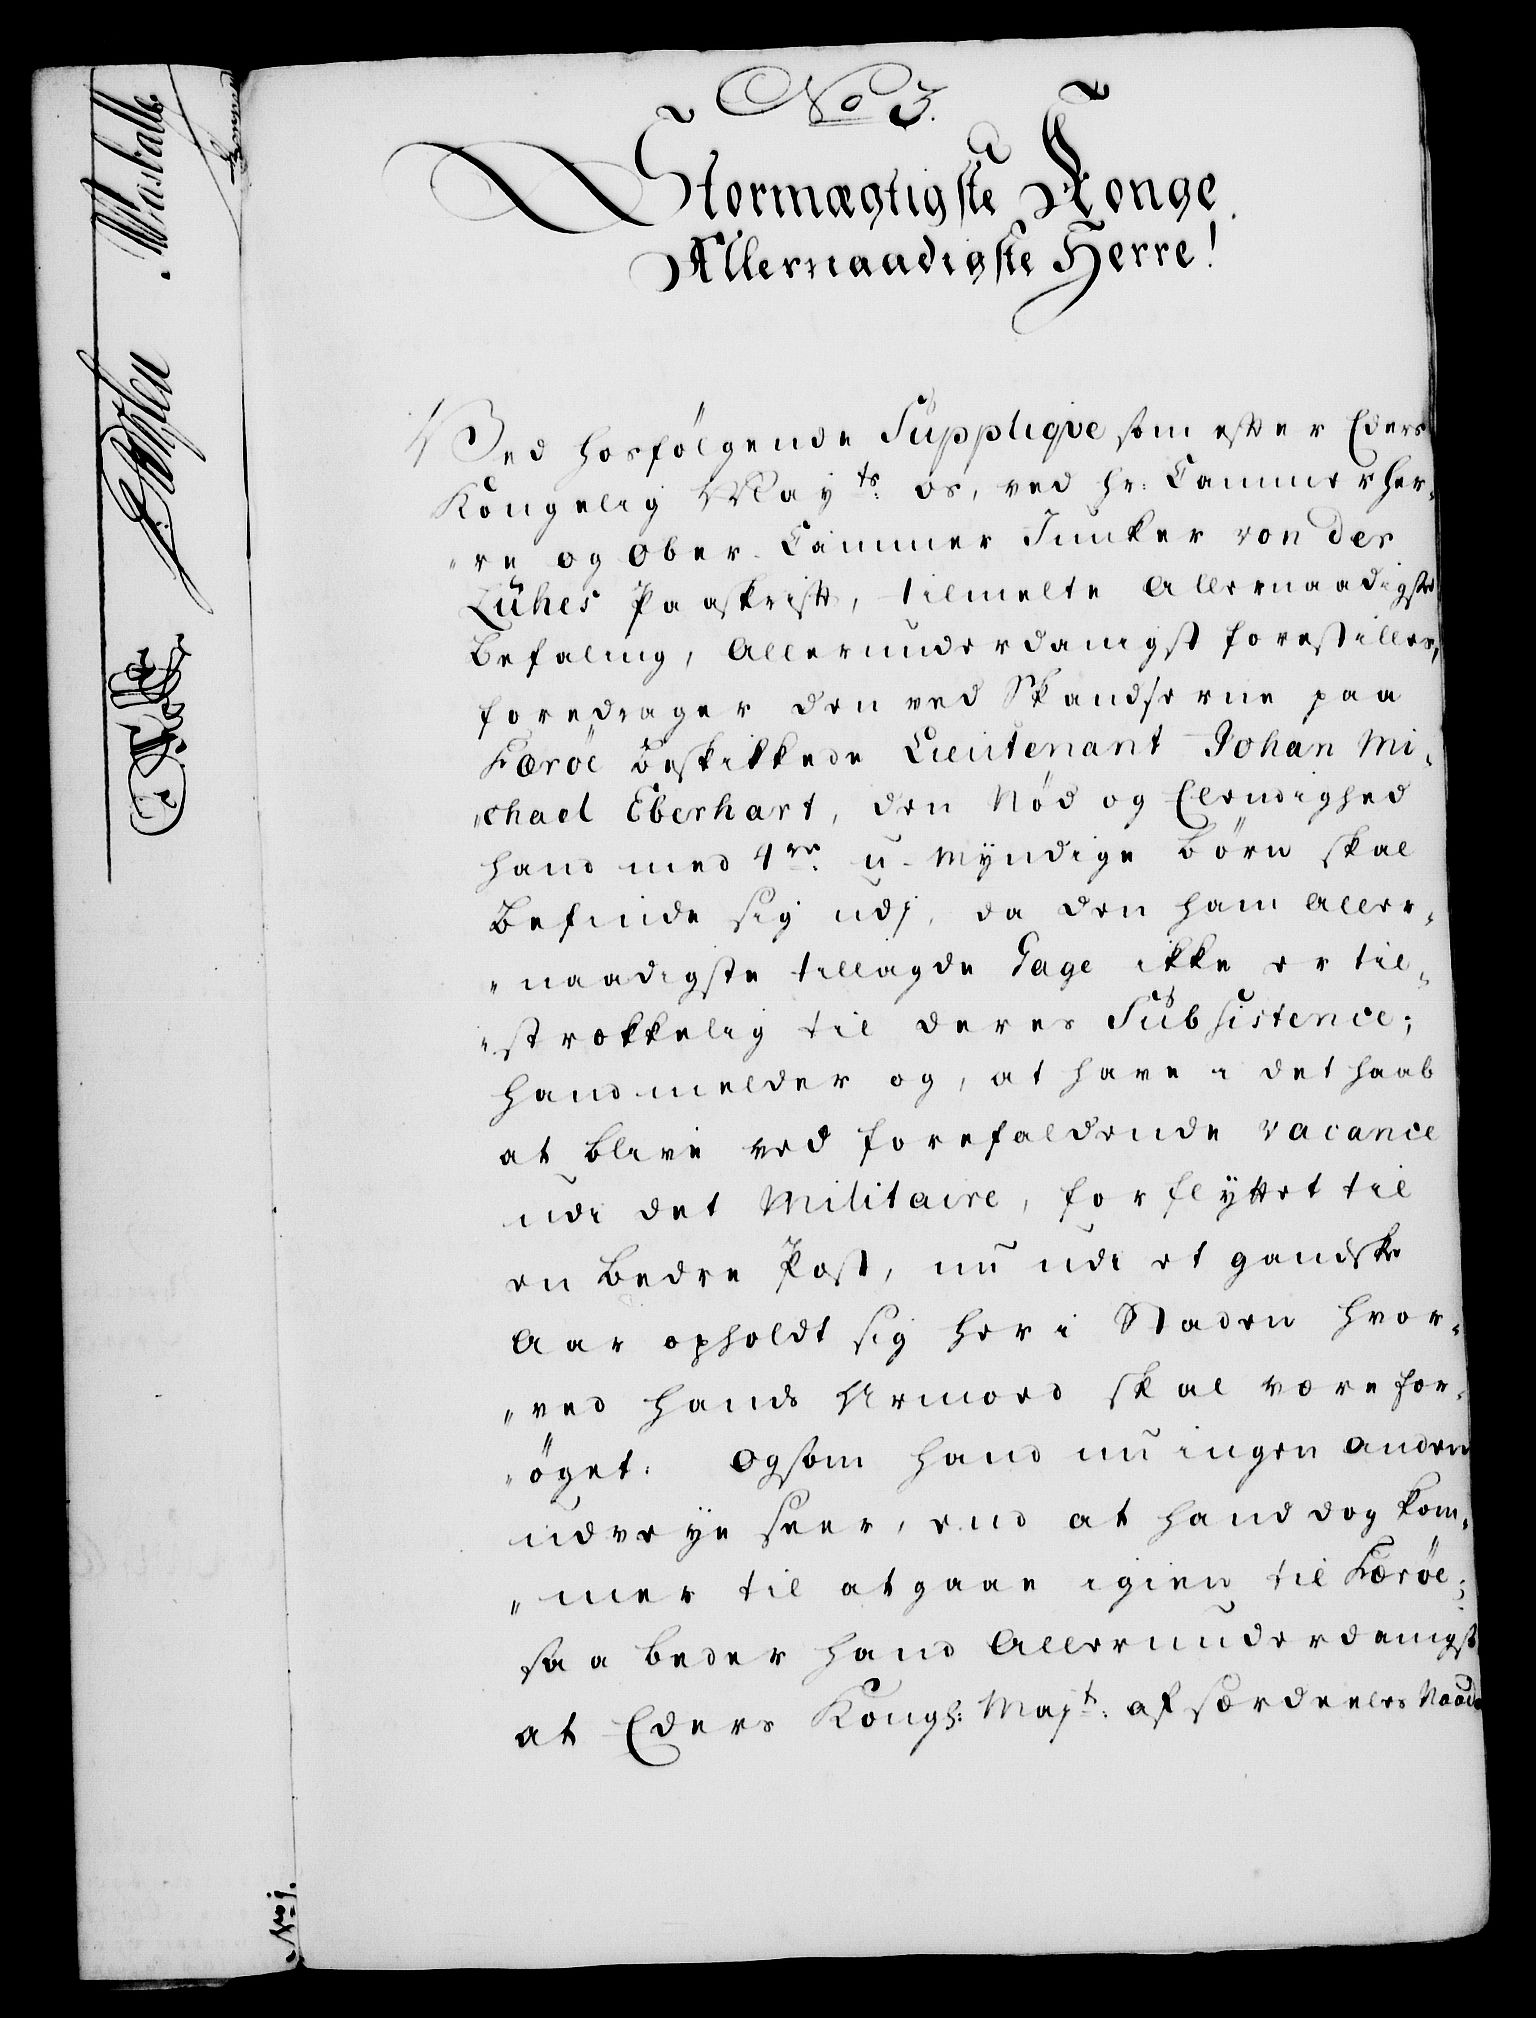 No 3.
Stormægtigste Konge
Allernaadigste Herre!
Ved hosfölgende Supplique som efter Eders
Kongelig Mayts: os, ved hr: Cammerher„
„re og Ober-Cammer Junker von der
Lühes Paaskrift, tilmelte Allernaadigste
Befaling, Allerunderdanigst forestilles,
foredrager den ved Skandserne paa
Færöe Beskikkede Lieutenant Johan Mi„
„chael Eberhart, den Nöd og Elendighed
hand med 4re u-Myndige Börn skal
Befinde sig udj, da den ham Aller„
„naadigste tillagde Gage ikke er til„
„strækkelig til deres Subsistence;
hand melder og, at have i det haab
at blive ved forefaldende vacance
udi det Militaire, forflyttet til
en bedre Post, nu udi et gandske
Aar opholdt sig her i Staden hvor„
„ved hands Armoed skal være for„
„öget. Og som hand nu ingen anden
udveye seer, end at hand dog kom„
„mer til at gaae igien til Færöe;
saa beder hand Allerunderdanigst
at Eders Kongl: Majt: af særdeeles Naade
No 1.